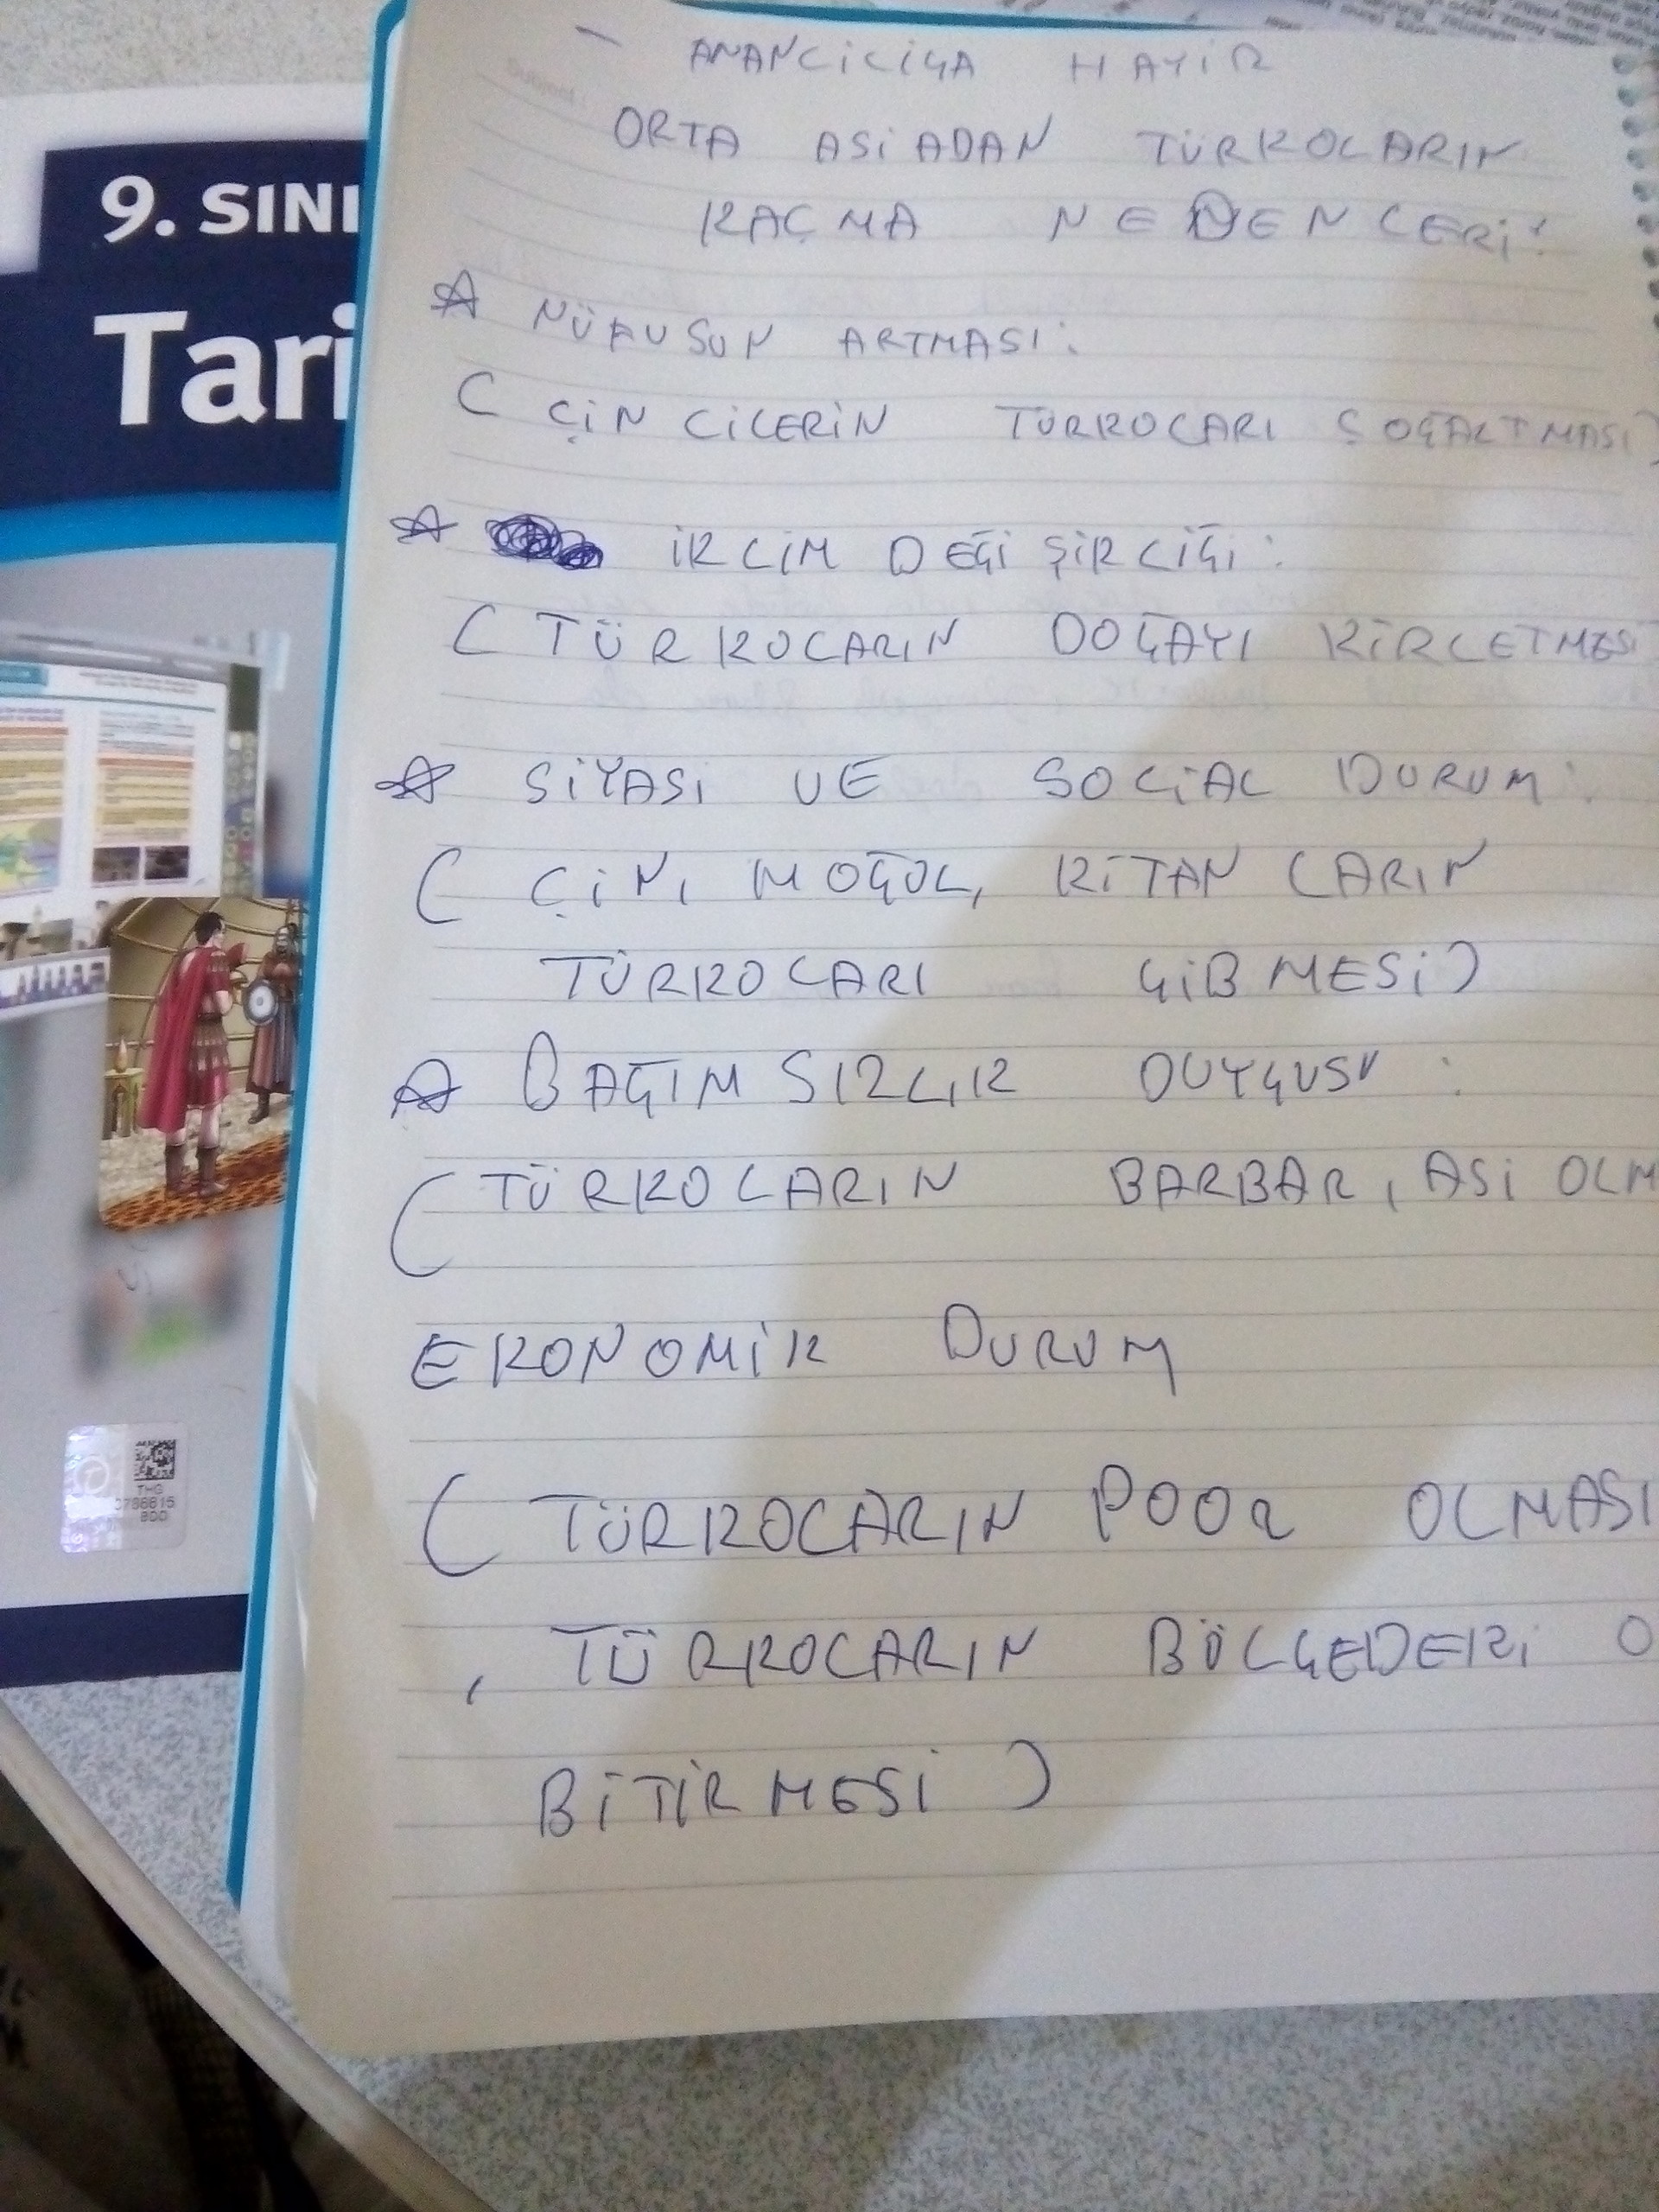 ANANCİLİĞA HAYIR
ORTA ASİADAN TÜRKOLARIN
KAÇMA NEDENLERİ:
NÜFUSUN ARTMASI:
( ÇİNLİLERİN TÜRKOLARI ÇOĞALTMASI)
İKLİM DEĞİŞİKLİĞİ:
( TÜRKOLARIN DOĞAYI KİRLETMESİ
SİYASİ VE SOCİAL DURUM:
( ÇİN, MOĞOL, KİTAN LARIN
TÜRKOLARI GİBMESİ)
BAĞIMSIZLIK DUYGUSU :
( TÜRKOLARIN BARBAR, ASİ OLM
EKONOMİK DURUM
( TÜRKOLARIN POOR OLMASI
, TÜRKOLARIN BÖLGEDEKİ O
BİTİRMESİ )
9. SINI
Tari
THG
0786615
BDD